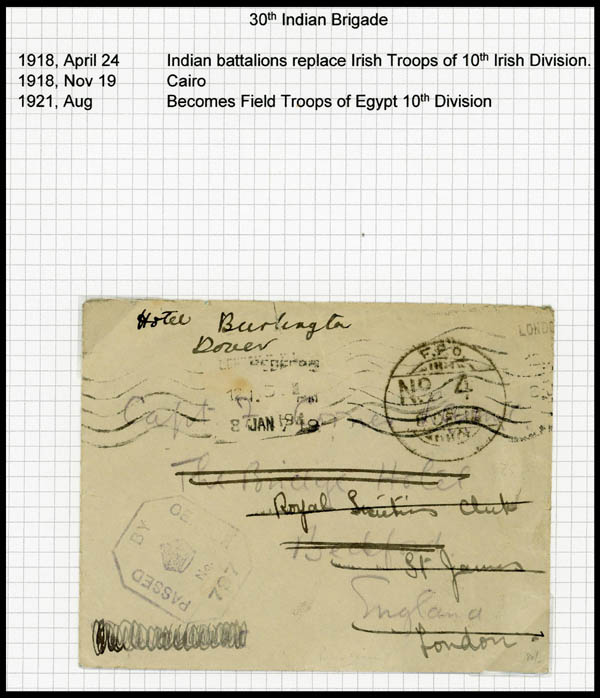 30th Indian Brigade
1918, April 24 Indian battalions replace Irish Troops of 10th Irish Division.
1918, Nov 19 Cairo
1921, Aug Becomes Field Troops of Egypt 10th Division
Hotel Burlington
Dover
LONDON
F.P.O.
No. 4
JAN
Capt
The Bridge Hotel
Royal Societies Club
Bedford
St James
England
London
PASSED BY
797